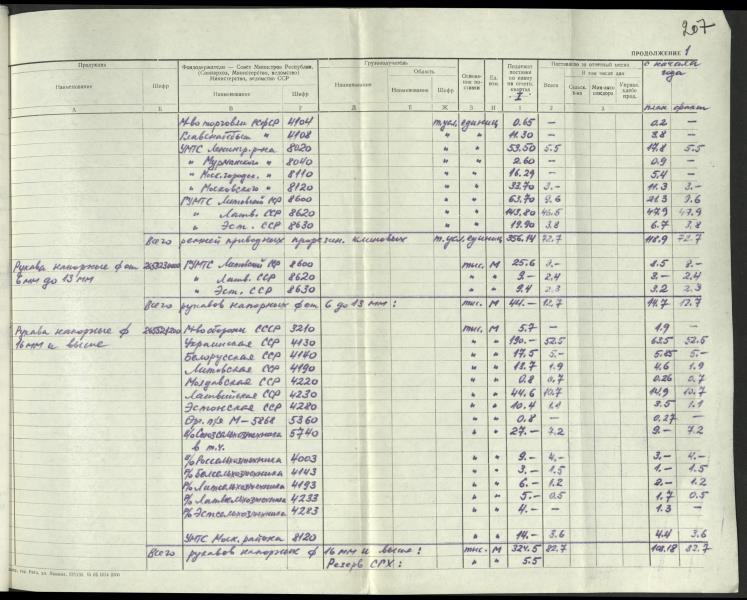 207
ПРОДОЛЖЕНИЕ 1
Продукция
Фондодержатели — Совет Министров Республики, (Совнархоз, Министерство, ведомство) Министерство, ведомство ССР
Грузополучатель
Область
Подлежит поставке по плану на отчетн. квартал
I
Поставлено за отчетный месяц
В том числе для
с начала года
Наименование Шифр Наименование Шифр Наименование Наименование Шифр Ед. изм. Всего план факт
А Б В Г Д Е Ж З И 1 2 3
М-во торговли РСФСР 4104 т.усл. единиц 0.65 — 0.2 —
Главснабсбыт " 4108 " " 11.30 — 3.8 —
УМТС Ленингр. р-на 8020 " " 53.50 5.5 17.8 5.5
" Мурманского " 8040 " " 2.60 — 0.9 —
" Моск. городск. " 8110 " " 16.29 — 5.4 —
" Московского " 8120 " " 33.70 3.- 11.3 3.-
ГУМТС Литовской ССР 8600 " " 63.70 9.6 21.3 9.6
" Латв. ССР 8620 " " 143.80 47.9
" Эст. ССР 8630 " " 19.90 3.8 6.7 3.8
Всего ремней приводных прорезин. клиновых т.усл. единиц 356.14 72.7 118.9 72.7
Рукава напорные ф от 6 мм до 13 мм ГУМТС Литовской ССР 8600 тыс. м 25.6 8.- 8.5 8.-
" Латв. ССР 8620 " " 9.- 2.4 3.- 2.4
" Эст. ССР 8630 " " 9.4 2.3 3.2 2.3
Всего рукавов напорных ф от 6 до 13 мм: тыс. м 44.- 12.7 14.7 12.7
Рукава напорные ф 16 мм и выше М-во обороны СССР 3210 тыс. м 5.7 — 1.9 —
Украинская ССР 4130 " " 190.- 52.5 63.5 52.5
Белорусская ССР 4140 " " 17.5 5.- 5.85 5.-
Литовская ССР 4190 " " 13.7 1.9 4.6 1.9
Молдавская ССР 4220 " " 0.8 0.7 0.26 0.7
Латвийская ССР 4230 " " 44.6 10.7 14.9 10.7
Эстонская ССР 4280 " " 10.4 3.5
Орг. п/я М-5868 5360 " " 0.8 — 0.27 —
В/О Союзсельхозтехника 5740 " " 27.- 7.2 9.- 7.2
в т.ч.
Р/о Россельхозтехника 4003 " " 9.- 4.- 3.- 4.-
Р/о Белсельхозтехника 4143 " " 3.- 1.5 1.- 1.5
Р/о Литсельхозтехника 4193 " " 6.- 1.2 2.- 1.2
Р/о Латвсельхозтехника 4233 " " 5.- 0.5 1.7 0.5
Р/о Эстсельхозтехника 4283 " " 4.- — 1.3 —
УМТС Моск. района 8120 " " 14.- 3.6 4.4 3.6
Всего рукавов напорных ф 16 мм и выше: тыс. м 324.5 82.7 108.18 82.7
Резерв СРХ: " " 5.5